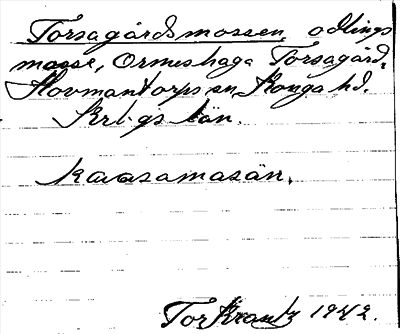 Torsagårdsmossen, odlings
mosse, Ormeshaga Torsagård.
Hovmantorps sn, Konga hd.
Krbgs län.
Tor Krantz 1942.